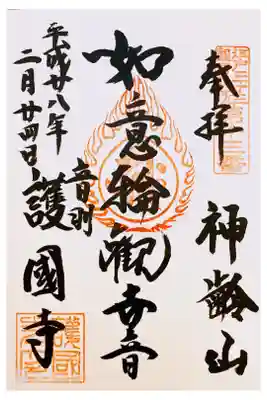 奉拝
神齢山
如意輪観世音
音羽
護國寺
平成廿八年
二月廿四日